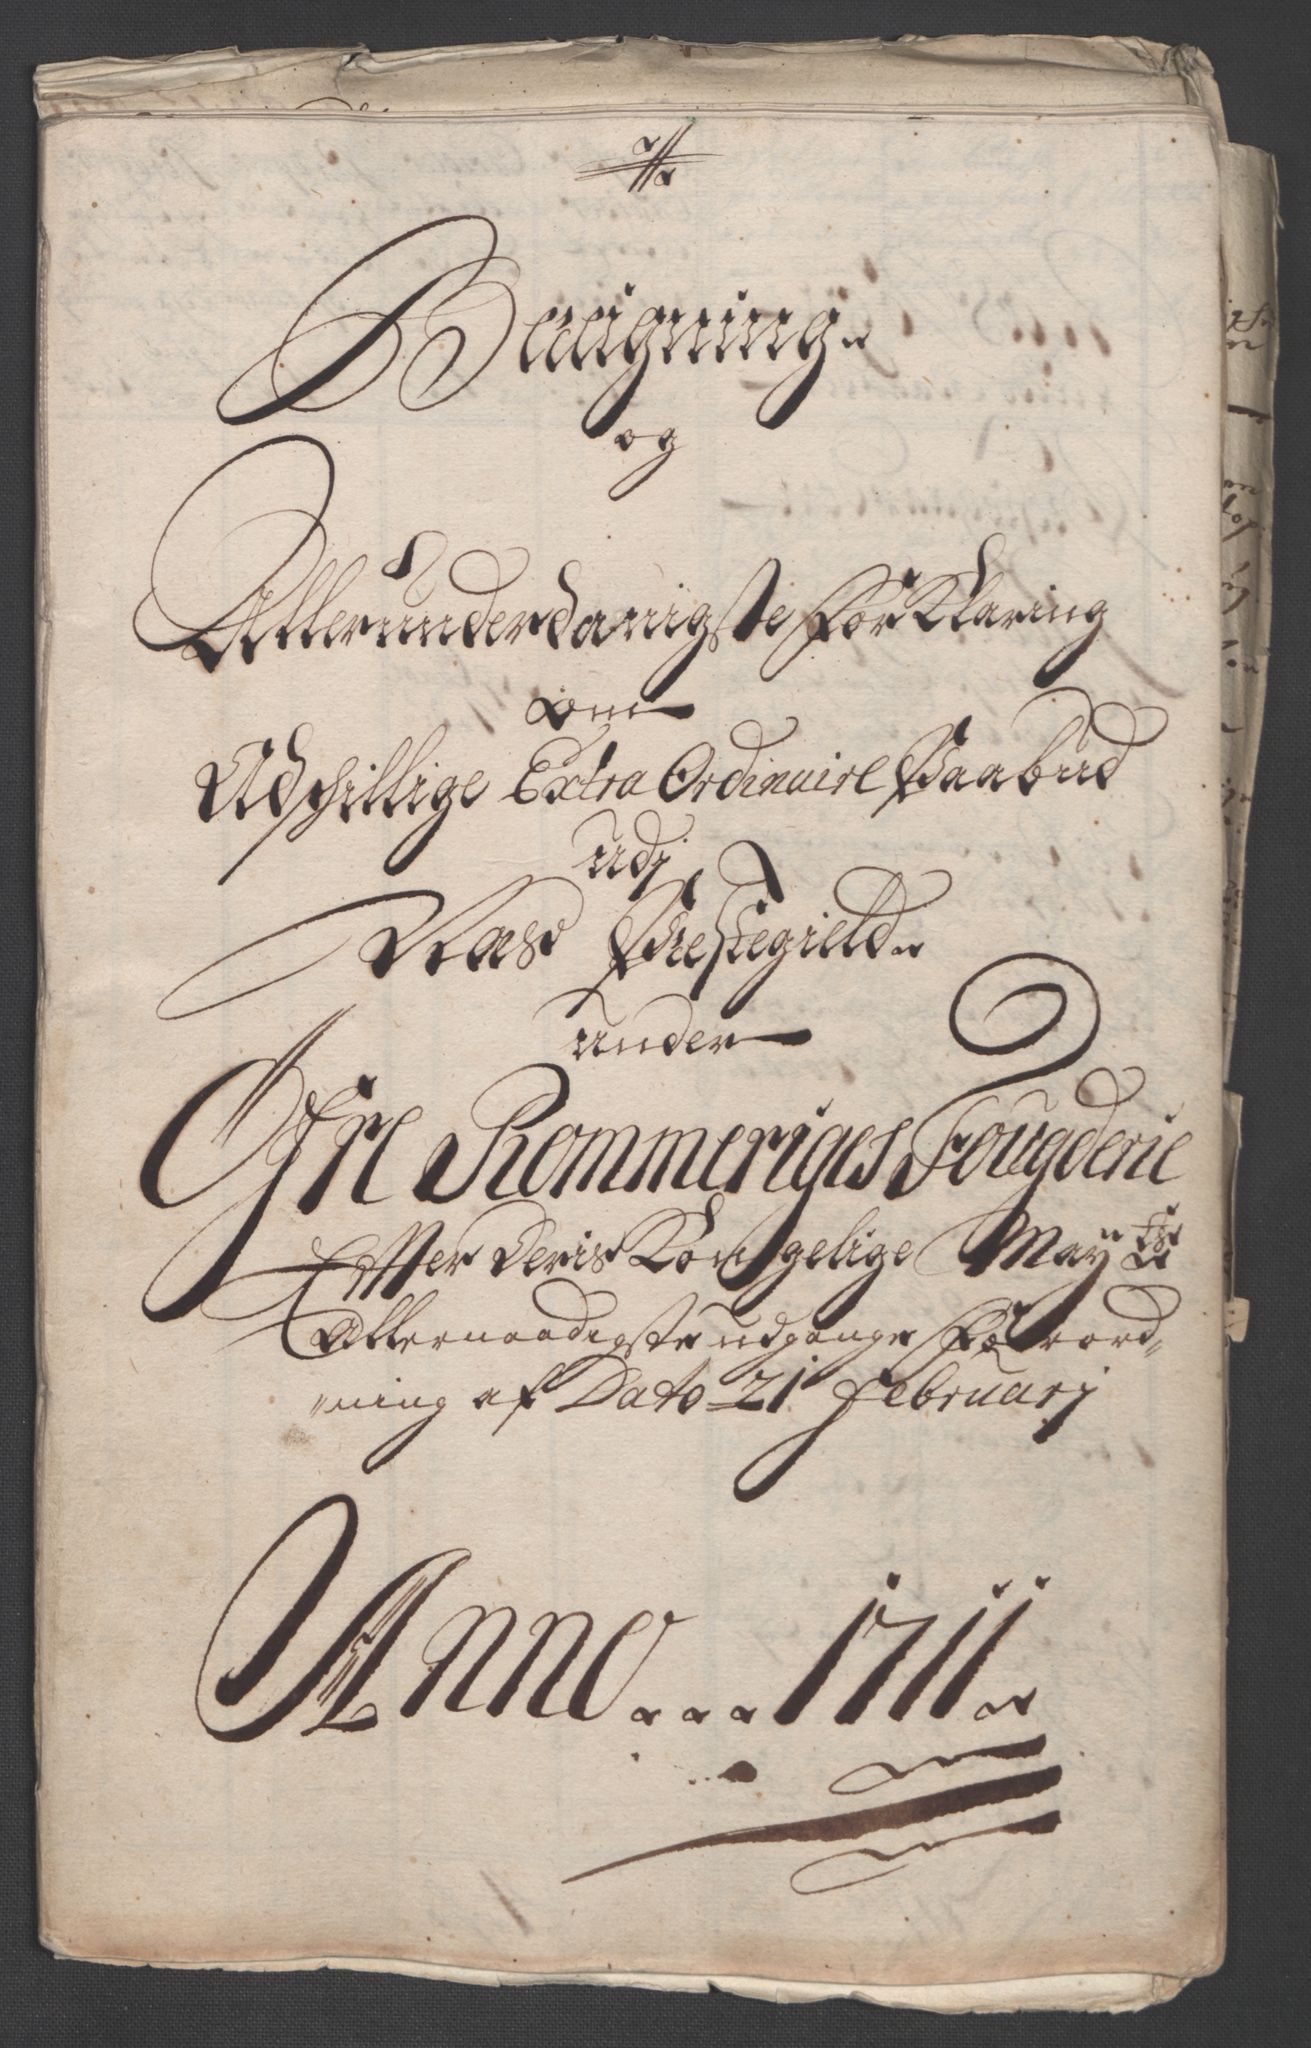 Beligning
og
Allerunderdanigste forKlaring
om
Udschillige Extra Ordinaire Paabud
udj
Næss Prestegield
under
Øfre Rommeriges Fougderie
Effter Deris Kongelige Mayts
Allernaadigste udgangne Forord-
ning af Dato 21 Februarj
Anno 1711